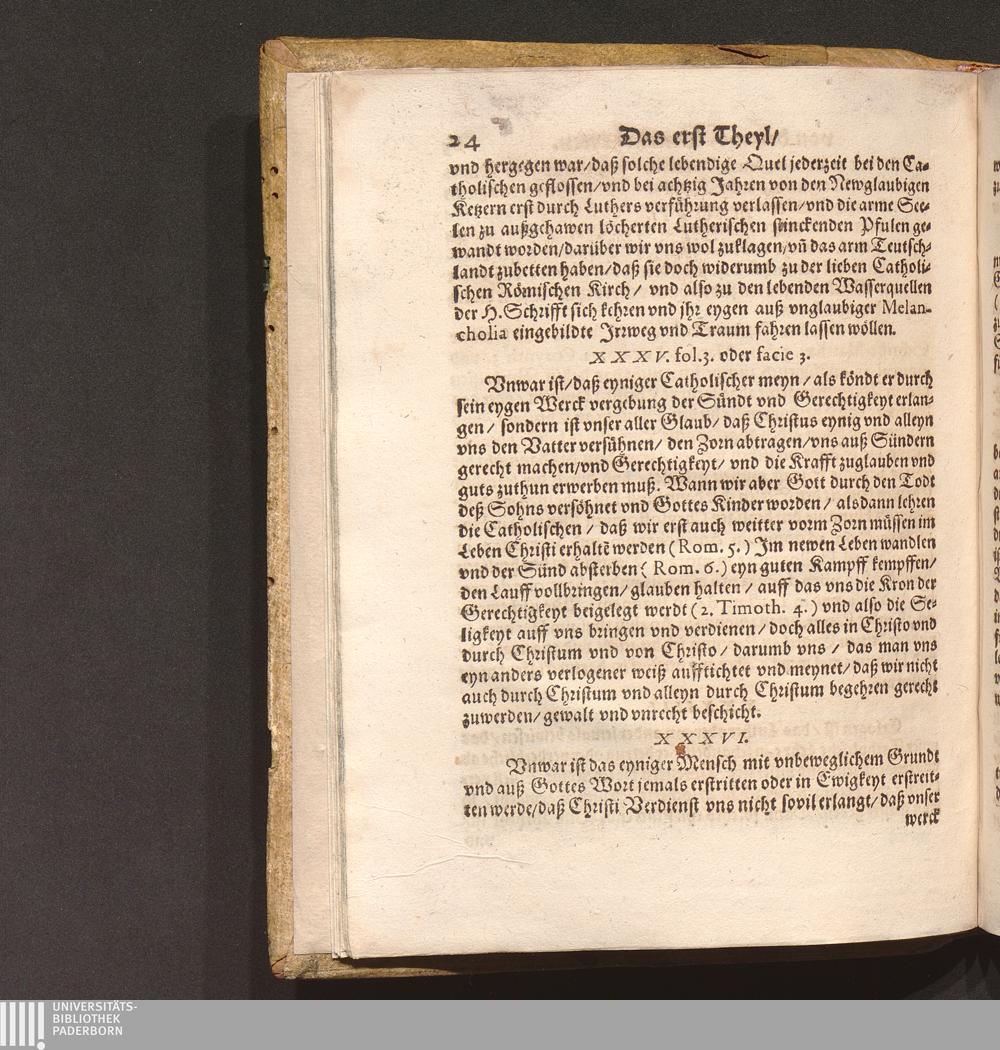 24 Das erst Theyl/
vnd hergegen war/daß solche lebendige Quel jederzeit bei den Ca-
tholischen geflossen/vnd bei achtzig Jahren von den Newglaubigen
Ketzern erst durch Luthers verführung verlassen/vnd die arme See-
len zu außgehawen löcherten Lutherischen stinckenden Pfulen ge-
wandt worden/darüber wir vns wol zuklagen/vñ das arm Teutsch-
landt zubetten haben/daß sie doch widerumb zu der lieben Catholi-
schen Römischen Kirch/ vnd also zu den lebenden Wasserquellen
der H. Schrifft sich kehren vnd jhr eygen auß vnglaubiger Melan-
cholia eingebildte Jrrweg vnd Traum fahren lassen wöllen.
XXXV. fol.3. oder facie 3.
Vnwar ist/daß eyniger Catholischer meyn/als köndt er durch
sein eygen Werck vergebung der Sündt vnd Gerechtigkeyt erlan-
gen/ sondern ist vnser aller Glaub/ daß Christus eynig vnd alleyn
vns den Vatter versühnen/ den Zorn abtragen/vns auß Sündern
gerecht machen/vnd Gerechtigkeyt/ vnd die Krafft zuglauben vnd
guts zuthun erwerben muß. Wann wir aber Gott durch den Todt
deß Sohns versöhnet vnd Gottes Kinder worden/ alsdann lehren
die Catholischen/ daß wir erst auch weitter vorm Zorn müssen im
Leben Christi erhaltẽ werden (Rom. 5.) Jm newen Leben wandlen
vnd der Sünd absterben (Rom. 6.) eyn guten Kampff kempffen/
den Lauff vollbringen/ glauben halten/ auff das vns die Kron der
Gerechtigkeyt beigelegt werdt (2. Timoth. 4.) vnd also die Se-
ligkeyt auff vns bringen vnd verdienen/ doch alles in Christo vnd
durch Christum vnd von Christo/ darumb vns/ das man vns
eyn anders verlogener weiß aufftichtet vnd meynet/ daß wir nicht
auch durch Christum vnd alleyn durch Christum begehren gerecht
zuwerden/ gewalt vnd vnrecht beschicht.
XXXVI.
Vnwar ist das eyniger Mensch mit vnbeweglichem Grundt
vnd auß Gottes Wort jemals erstritten oder in Ewigkeyt erstreit-
ten werde/daß Christi Verdienst vns nicht sovil erlangt/ daß vnser
werck
UNIVERSITÄTS-
BIBLIOTHEK
PADERBORN